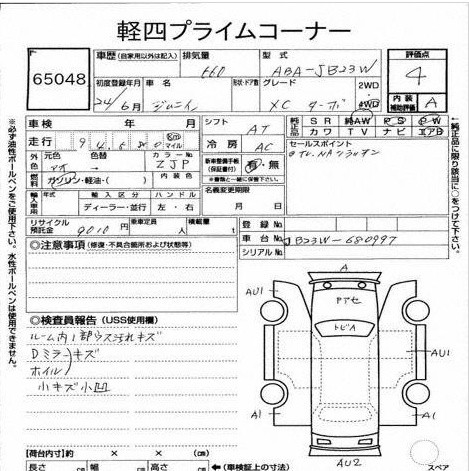 軽四プライムコーナー
65048
車歴 (自家用以外は記入)
排気量
660
型式
ABA-JB23W
評価点
4
初度登録年月
24年6月
車名
ジムニィ
形状・ドア数
グレード
XC ターボ
2WD
4WD
内装補助評価
A
車検 年 月
シフト
AT
純正品 SR 純AW PS PW
カワ TV ナビ エアB
走行
マイル
冷房
AC
セールスポイント
外色 元色 色替
カラーNo.
ZJP
新車整備手帳(保証書付)
有・無
※書類と一緒に保管して下さい。
燃料 ガソリン・軽油・( )
内装色
名義変更期限
月 日
輸入車用 年式 輸入区分 ハンドル
ディーラー・並行 左・右
リサイクル預託金
9010円
乗車定員 人
積載量 t
登録No.
車台No.
JB23W-680997
シリアルNo.
◎注意事項 (修復・不具合箇所および状態等)
◎検査員報告 (USS使用欄)
ルーム内1部ウス汚れキズ
Dミラーキズ
ホイル
小キズ小凹
A
AU1
アアセ
トビA
AU1
A1
A1
AU2
スペア
【荷台内寸】 × × (㎝)
長さ ㎝ 幅 ㎝ 高さ ㎝ ←(車検証上の寸法)
※必ず油性ボールペンをご使用下さい。水性ボールペンは使用できません。
純正品に限り該当に○をつけて下さい。